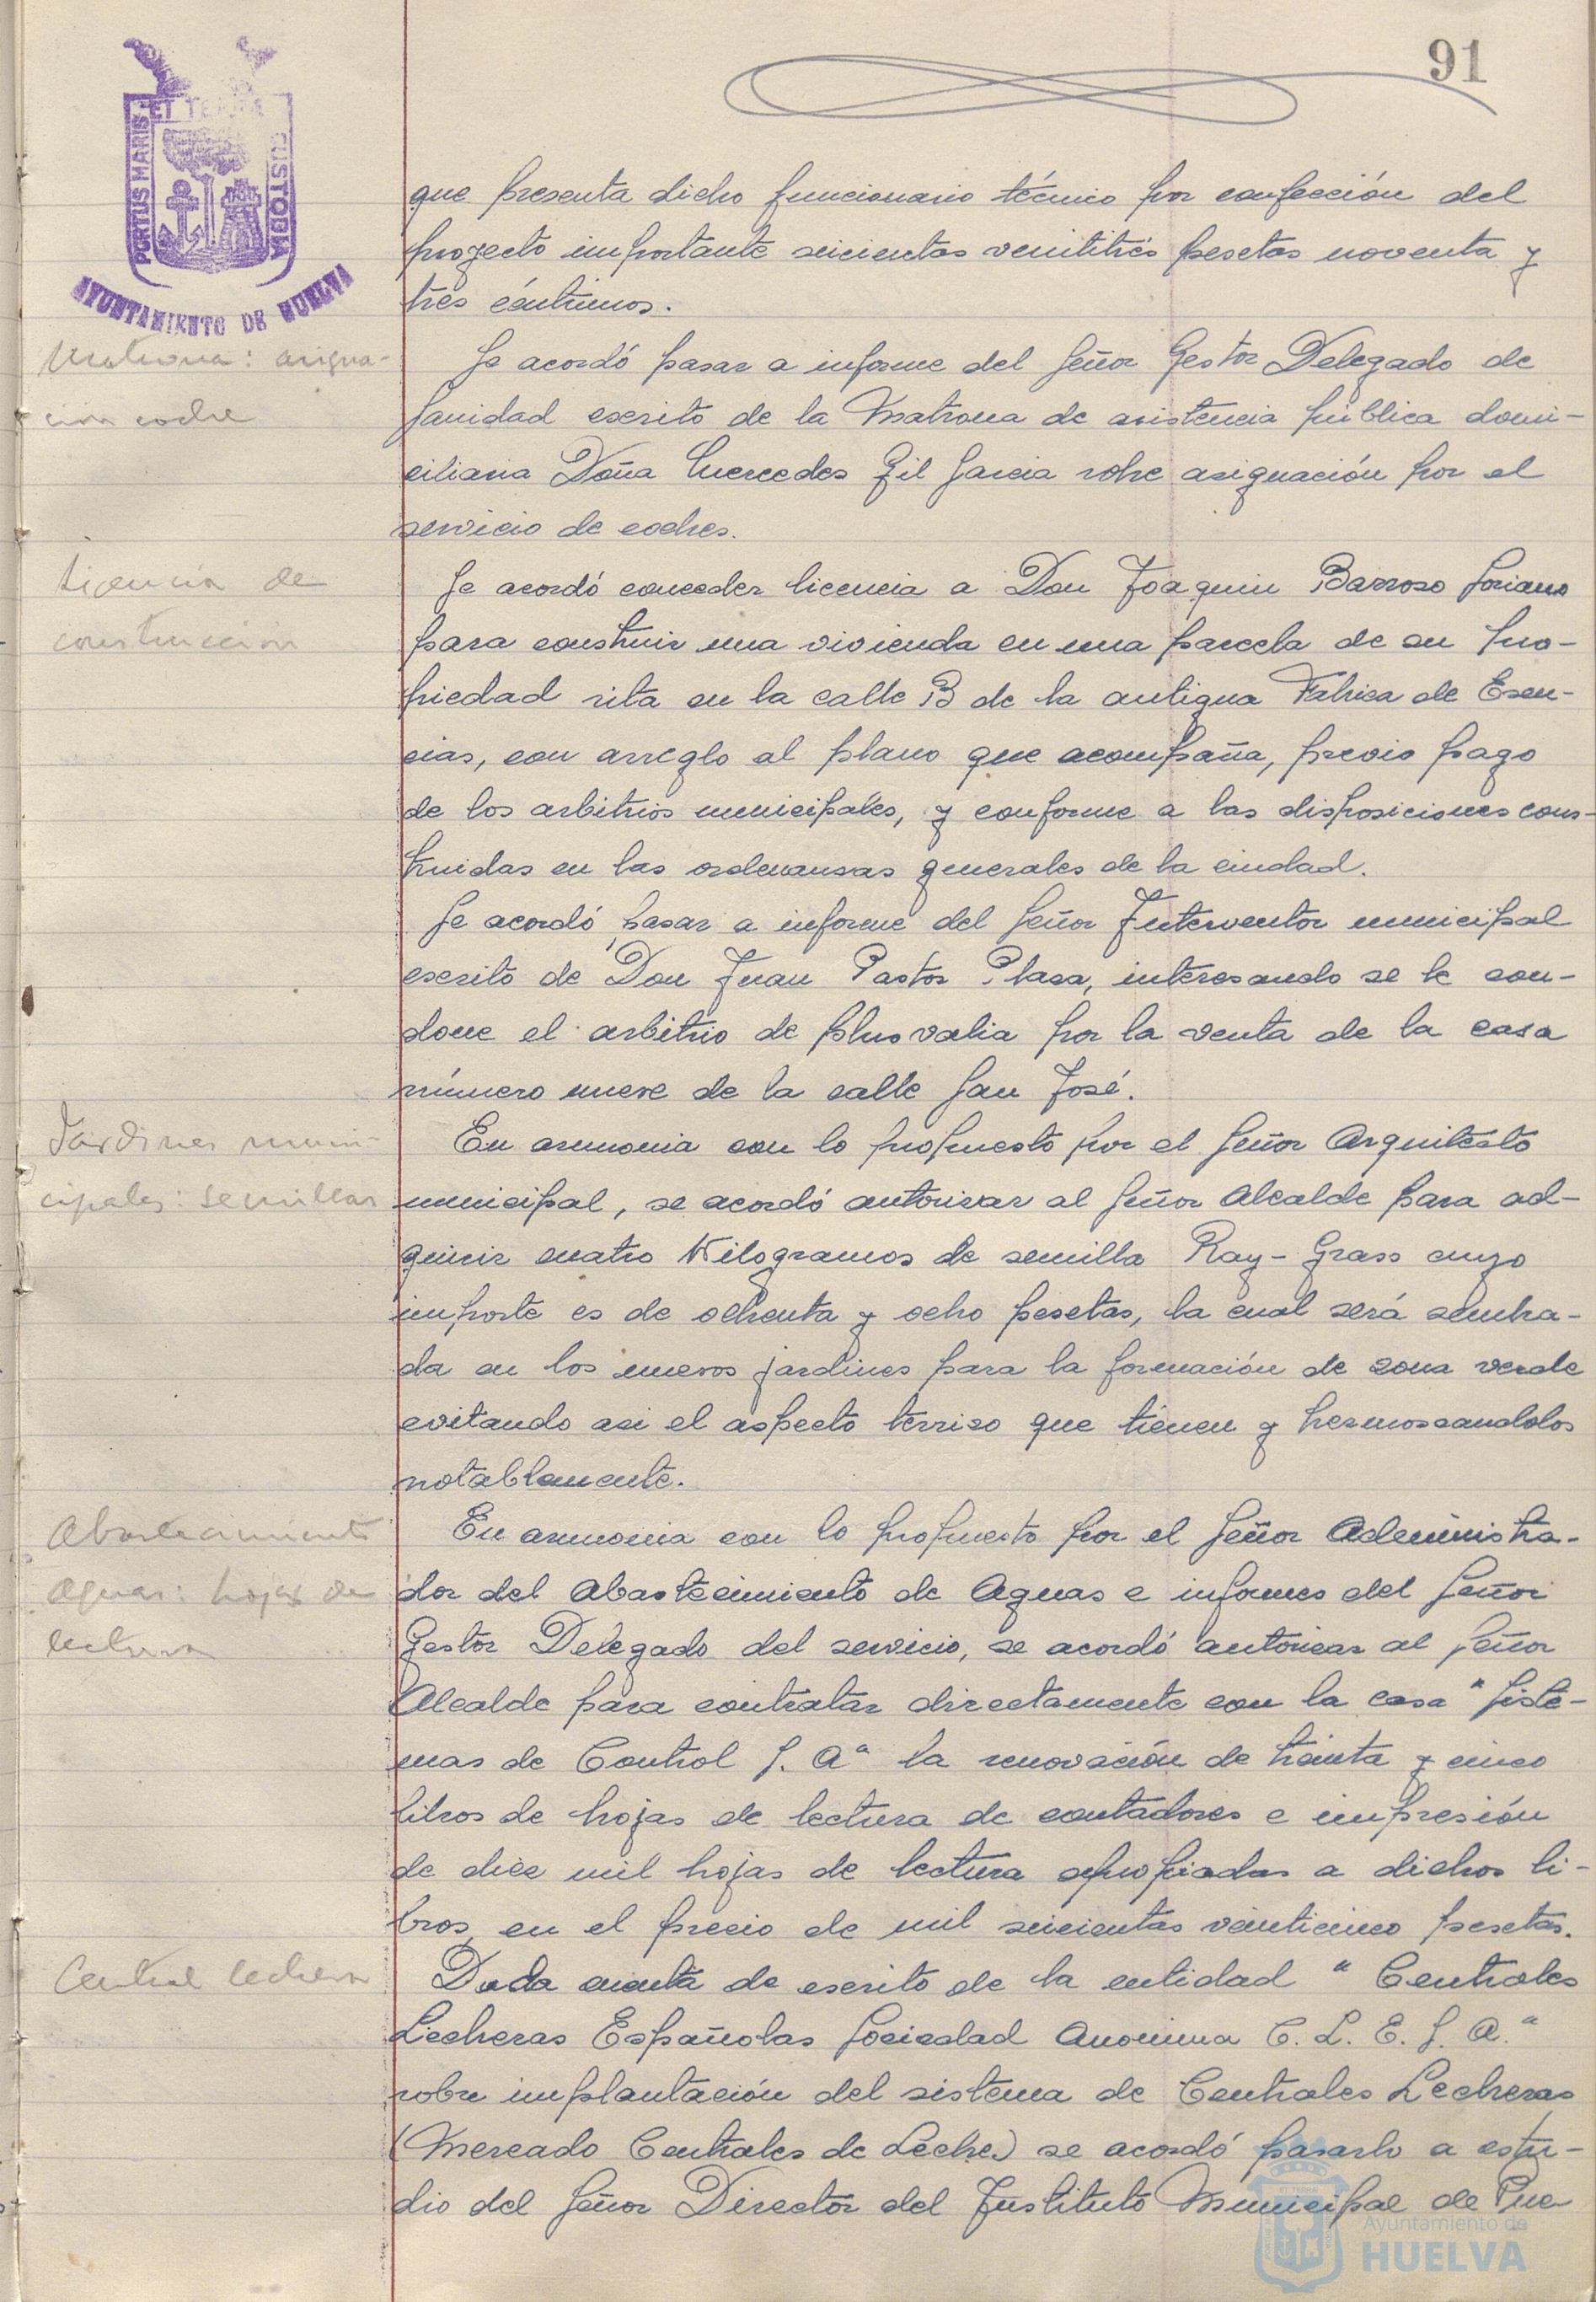 91
PORTUS MARIS ET TERRE CUSTODIA
AYUNTAMIENTO DE HUELVA
que presenta dicho funcionario técnico por confección del
proyecto importante seicientas veintitrés pesetas noventa y
tres céntimos.
Matrona: asigna-
ción coche
Se acordó pasar a informe del Señor Gestor Delegado de
Sanidad escrito de la Matrona de asistencia pública domi-
ciliaria Doña Mercedes Gil Garcia sobre asignación por el
servicio de coches.
Licencia de
construccion
Se acordó conceder licencia a Don Joaquin Barroso Soriano
para construir una vivienda en una parcela de su pro-
piedad sita en la calle B de la antigua Fabrica de Esen-
cias, con arreglo al plano que acompaña, previo pago
de los arbitrios municipales, y conforme a las disposiciones cons-
truidas en las ordenansas generales de la ciudad.
Se acordó pasar a informe del Señor Interventor municipal
escrito de Don Juan Pastor Plasa, interesando se le con-
done el arbitrio de plusvalia por la venta de la casa
número nueve de la calle San José.
Jardines muni-
cipales: semillas
En armonia con lo propuesto por el Señor Arquitecto
municipal, se acordó autorisar al Señor Alcalde para ad-
quirir cuatro Kilogramos de semilla Ray-Grass cuyo
importe es de ochenta y ocho pesetas, la cual será sembra-
da en los nuevos jardines para la formación de zona verde
evitando asi el aspecto terriso que tienen y hermoseandolos
notablemente.
Abastecimiento
Aguas: hojas de
lectura
En armonia con lo propuesto por el Señor Administra-
dor del Abastecimiento de Aguas e informes del Señor
Gestor Delegado del servicio, se acordó autorisar al Señor
Alcalde para contratar directamente con la casa "Siste-
mas de Control S. A" la renovación de treinta y cinco
libros de hojas de lectura de contadores e impresión
de diez mil hojas de lectura apropiadas a dichos li-
bros, en el precio de mil seicientas veinticinco pesetas.
Central lechera
Dada cuenta de escrito de la entidad "Centrales
Lecheras Españolas Sociedad Anonima C. L. E. S. A."
sobre implantación del sistema de Centrales Lecheras
(Mercado Centrales de Leche) se acordó pasarlo a estu-
dio del Señor Director del Instituto Municipal de Pue
Ayuntamiento de
HUELVA